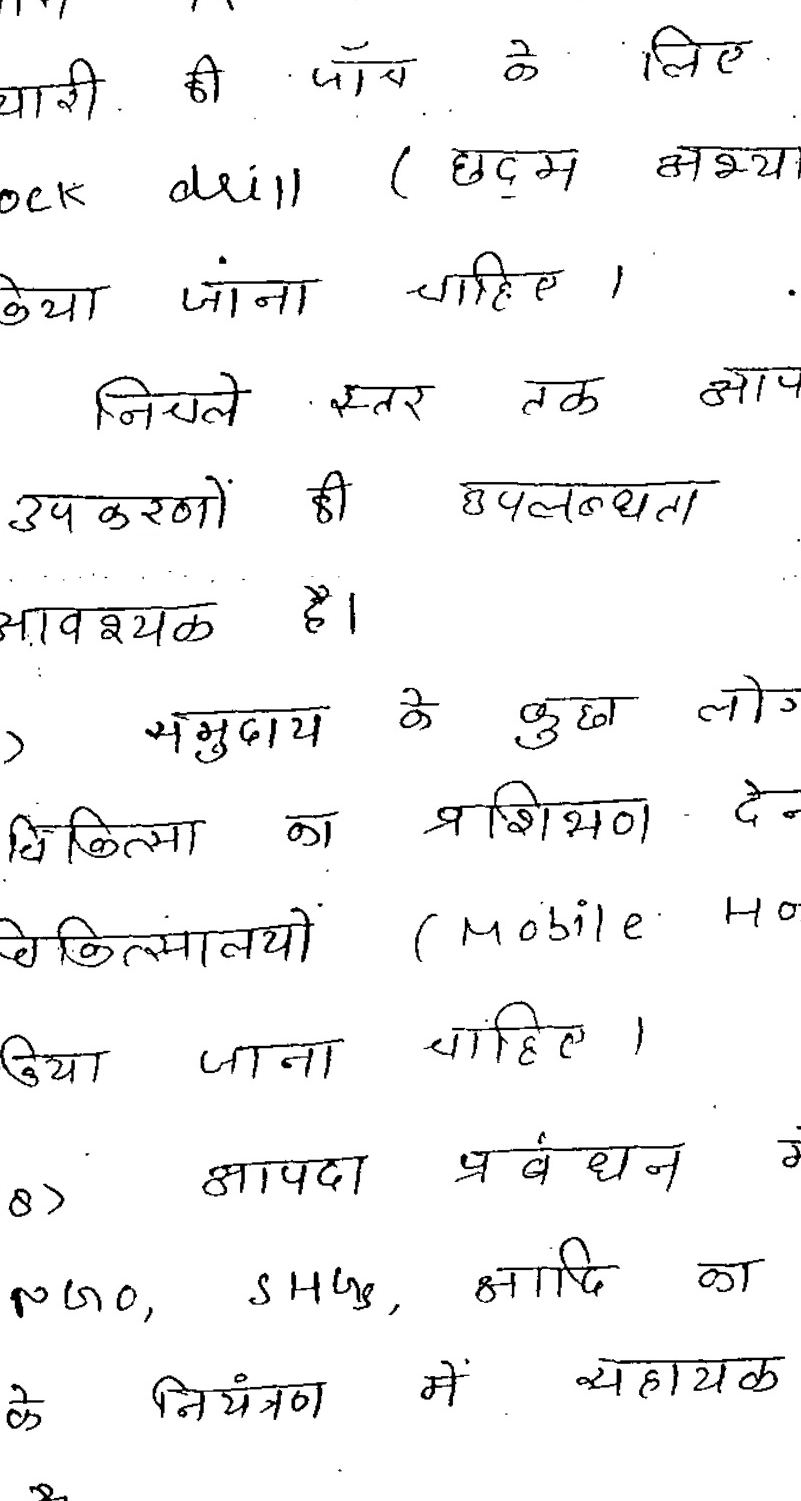 यारी की जाँच के लिए
ock drill ( छद्म अभ्या
किया जांना चाहिए ।
निचले स्तर तक आप
उपकरणों की उपलब्धता
आवश्यक है।
) समुदाय के कुछ लोग
चिकित्सा का प्रशिक्षण देन
चिकित्सालयों ( Mobile Ho
किया जाना चाहिए ।
8) आपदा प्रबंधन में
NGO, SHGs, आदि का
के नियंत्रण में सहायक